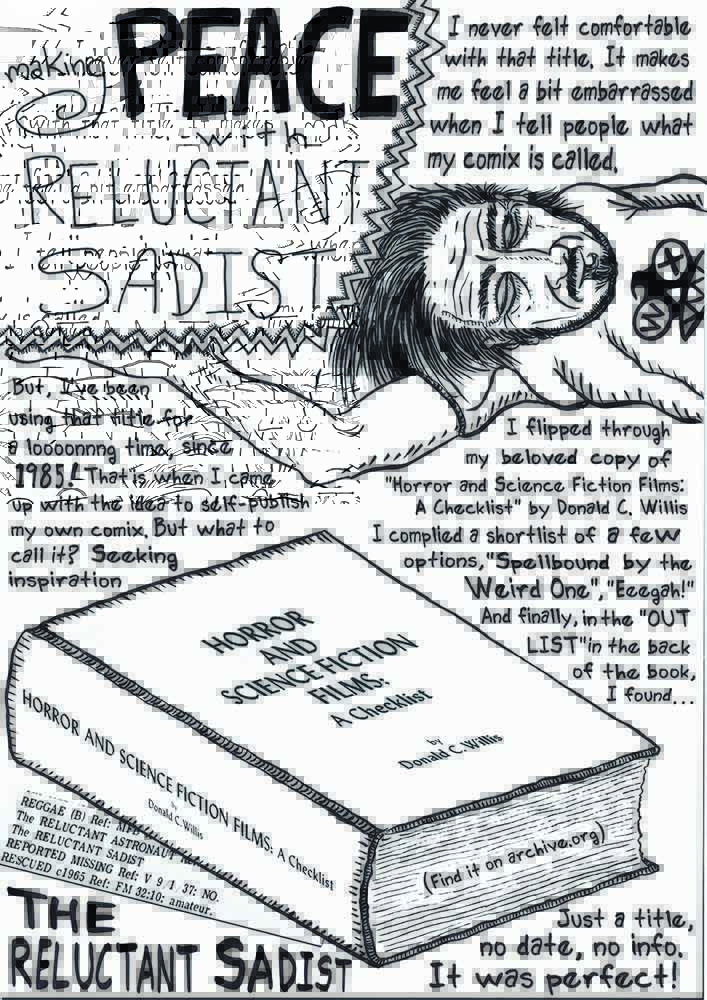 making
PEACE
with
RELUCTANT
SADIST
I never felt comfortable
with that title. It makes
me feel a bit embarrassed
when I tell people what
my comix is called.
But, I've been
using that title for
a looooonnng time, since
1985! That is when I came
up with the idea to self-publish
my own comix. But what to
call it? Seeking
inspiration
I flipped through
my beloved copy of
"Horror and Science Fiction Films:
A Checklist" by Donald C. Willis
I complied a shortlist of a few
options, "Spellbound by the
Weird One", "Eeegah!"
And finally, in the "OUT
LIST" in the back
of the book,
I found...
HORROR
AND
SCIENCE FICTION
FILMS:
A Checklist
by
Donald C. Willis
HORROR AND SCIENCE FICTION FILMS: A Checklist
by
Donald C. Willis
(Find it on archive.org)
REGGAE (B) Ref:
The RELUCTANT ASTRONAUT
The RELUCTANT SADIST
REPORTED MISSING Ref: V 9/1/37: NO.
RESCUED c1965 Ref: FM 32:10: amateur.
THE
RELUCTANT SADIST
Just a title,
no date, no info.
It was perfect!